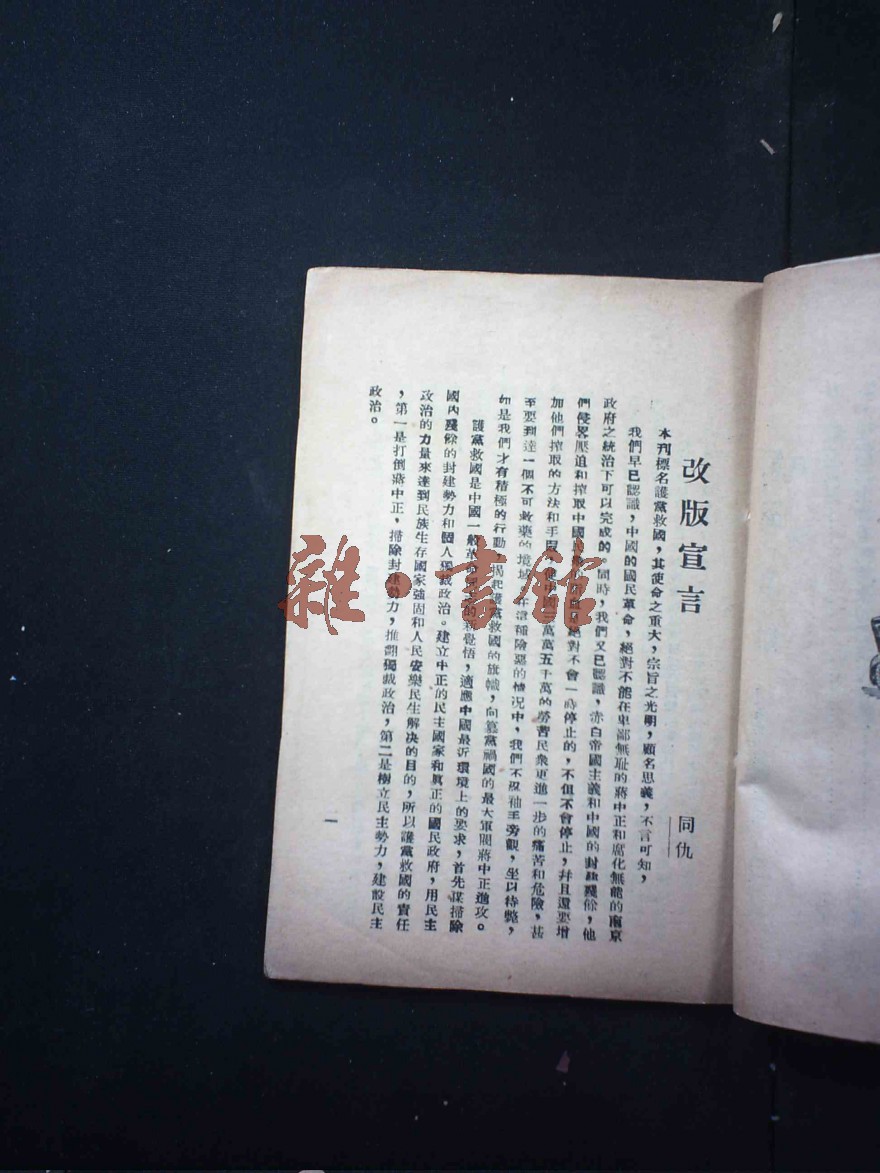 改版宣言
同仇
本刊標名護黨救國,其使命之重大,宗旨之光明,顧名思義,不言可知,
我們早已認識,中國的國民革命,絕對不能在卑鄙無恥的蔣中正和腐化無能的南京
政府之統治下可以完成的。同時,我們又已認識,赤白帝國主義和中國的封建殘餘,他
們侵畧壓迫和搾取中國絕對不會一時停止的,不但不會停止,幷且還要增
加他們搾取的方法和手萬萬五千萬的勞苦民衆更進一步的痛苦和危險,甚
至要到達一個不可救藥的境域種險惡的情况中,我們不忍袖手旁觀,坐以待斃,
如是我們才有積極的行動,揭起護黨救國的旗幟,向篡黨禍國的最大軍閥蔣中正進攻。
護黨救國是中國一般革命新覺悟,適應中國最近環境上的要求,首先謀掃除
國內殘餘的封建勢力和個人獨裁政治。建立中正的民主國家和眞正的國民政府,用民主
政治的力量來達到民族生存國家強固和人民安樂民生解决的目的,所以護黨救國的責任
,第一是打倒蔣中正,掃除封建勢力,推翻獨裁政治,第二是樹立民主勢力,建設民主
政治。
一
雜·書館